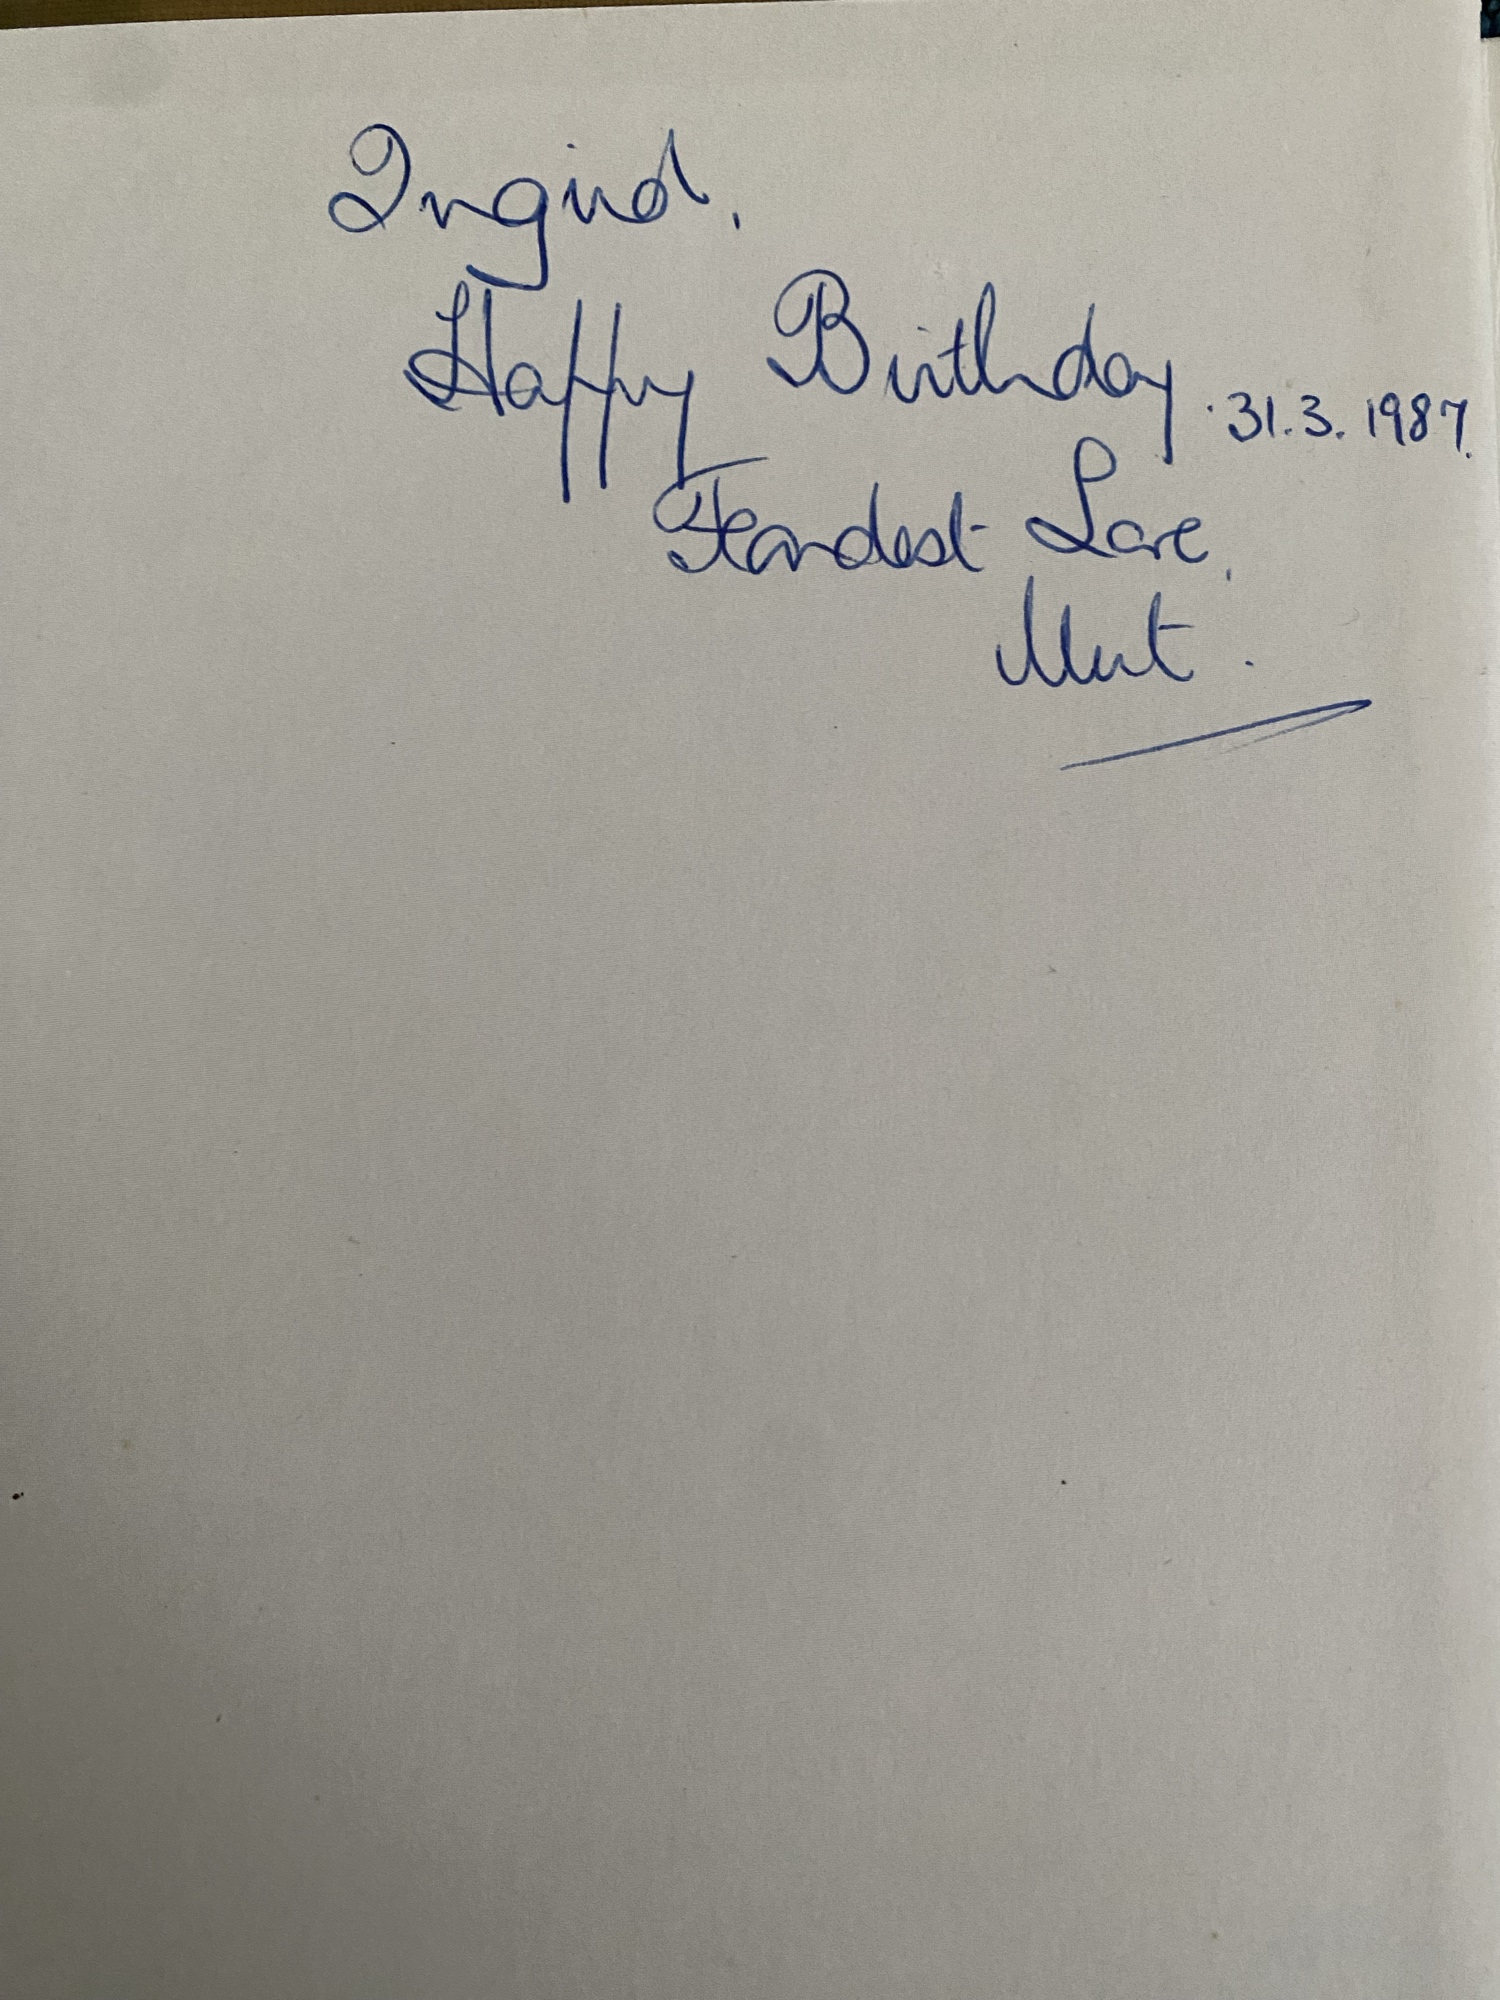 Ingrid,
Happy Birthday. 31.3.1987.
Fondest Love,